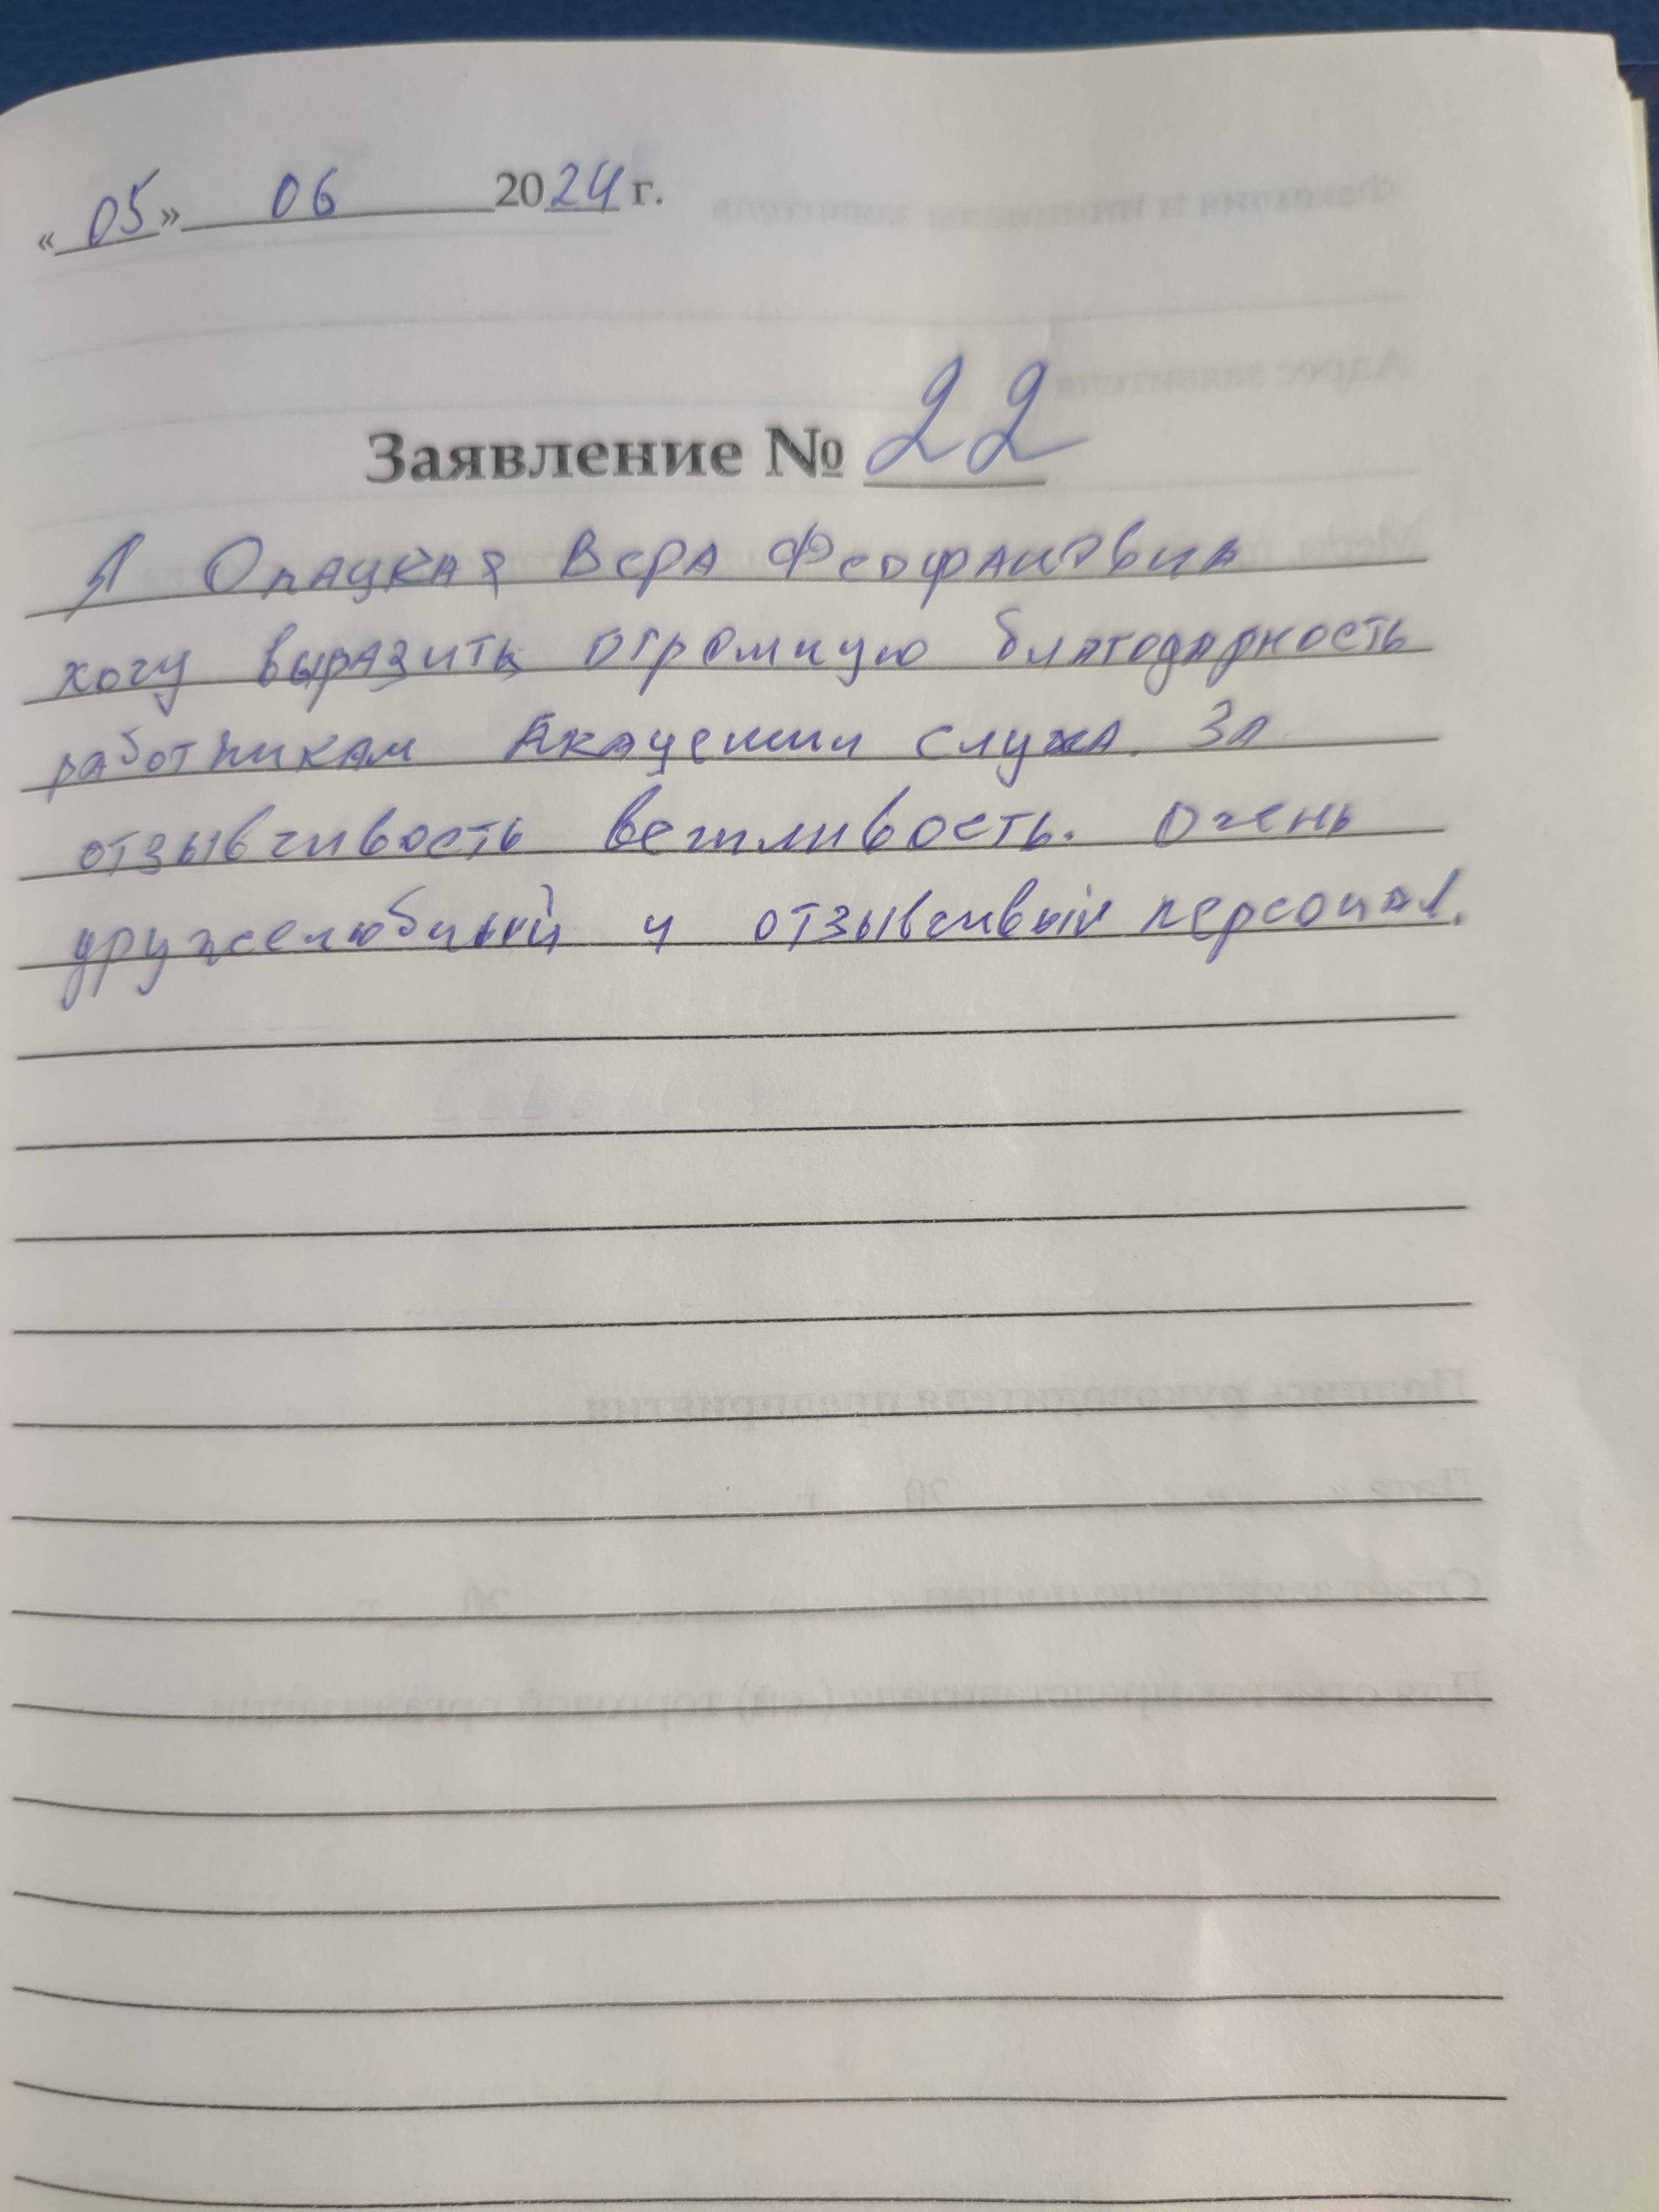 «05» 06 2024 г.
Заявление № 22
Я Опацкая Вера Феофановна
хочу выразить огромную благодарность
работникам Академии слуха. За
отзывчивость вежливость. Очень
дружелюбный и отзывчивый персонал.